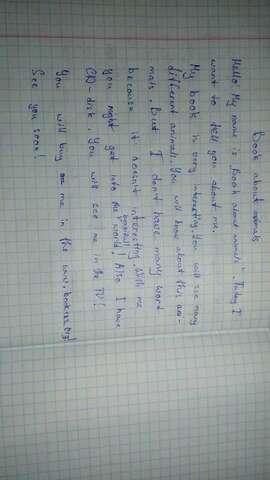 Book about animals
Hello My name is "Book about animals". Today I
want to tell you about me.
My book is very interesting. You will see many
different animals. You will know about this ani-
mals. But I don't have many word
because it doesn't interesting. With me
you might get into the world! Also I have
CD-disk. You will see me in the TV!
You will buy me in the
See you soon!